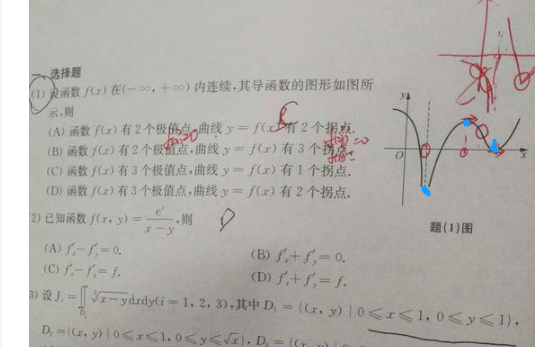 一、选择题
(1) 设函数 f(x) 在(-∞, +∞) 内连续,其导函数的图形如图所
示,则
(A) 函数 f(x) 有 2 个极值点,曲线 y = f(x) 有 2 个拐点.
(B) 函数 f(x) 有 2 个极值点,曲线 y = f(x) 有 3 个拐点.
(C) 函数 f(x) 有 3 个极值点,曲线 y = f(x) 有 1 个拐点.
(D) 函数 f(x) 有 3 个极值点,曲线 y = f(x) 有 2 个拐点.
y
O
x
题(1)图
2) 已知函数 f(x, y) = e^x/(x-y),则
D
(A) f'_x - f'_y = 0.
(B) f'_x + f'_y = 0.
(C) f'_x - f'_y = f.
(D) f'_x + f'_y = f.
3) 设 J_i = ∬_{D_i} ∛(x-y)dxdy(i = 1, 2, 3),其中 D_1 = {(x, y) | 0 ≤ x ≤ 1, 0 ≤ y ≤ 1},
D_2 = {(x, y) | 0 ≤ x ≤ 1, 0 ≤ y ≤ √x},